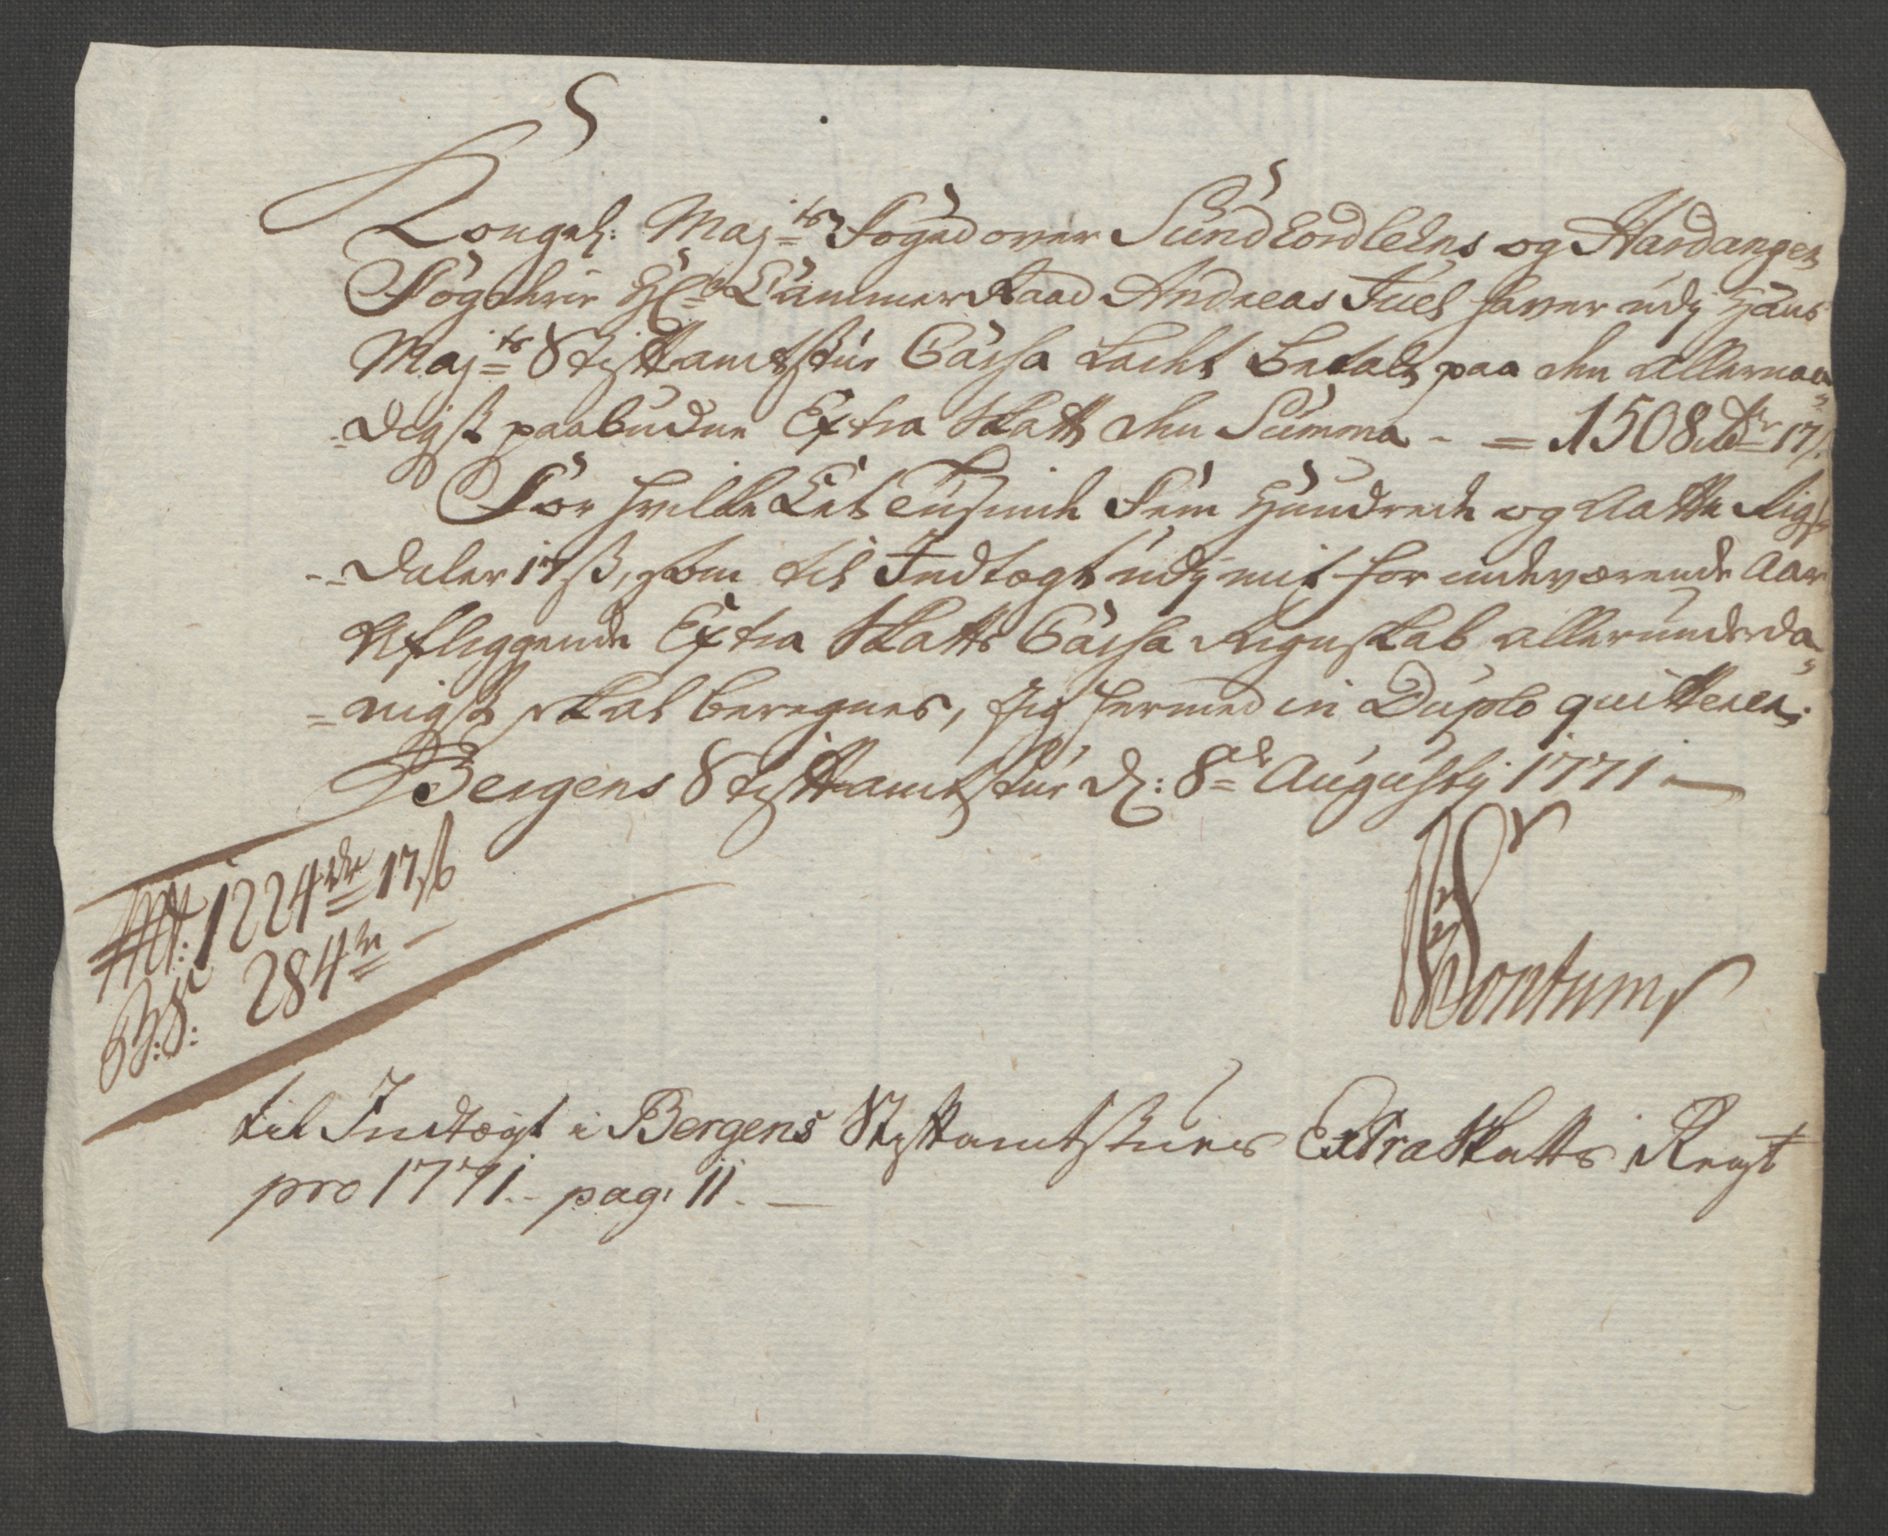 Kongel: Maj=ts Foged over Sundhordlehns og Hardanger
Fögderie Hr. Cammer Raad Andreas Juel haver udj Hans
Maj=ts Stiftamtstue Cassa ladet betale paa den allernaa=
=digst paabudne Extra Skatt den Summa - = 1508 rdr 17 s.
For hvilke Eet Tusinde Fem Hundrede og Aatte Rigs
=daler 17 s, som til Indtægt udj mit for indeværende Aar
Aflæggende Extra Skatts Cassa Regnskab allerunderda=
=nigst skal beregnes, Jeg hermed in Duplo quitterer.
Bergens Stiftamtstue d: 8de Augustij 1771 —
1224 rdr 17 s
284 rdr —
Wontum
til Indtægt i Bergens Stiftamtstues Extra Skatts Regst
pro 1771. - pag: 11. —